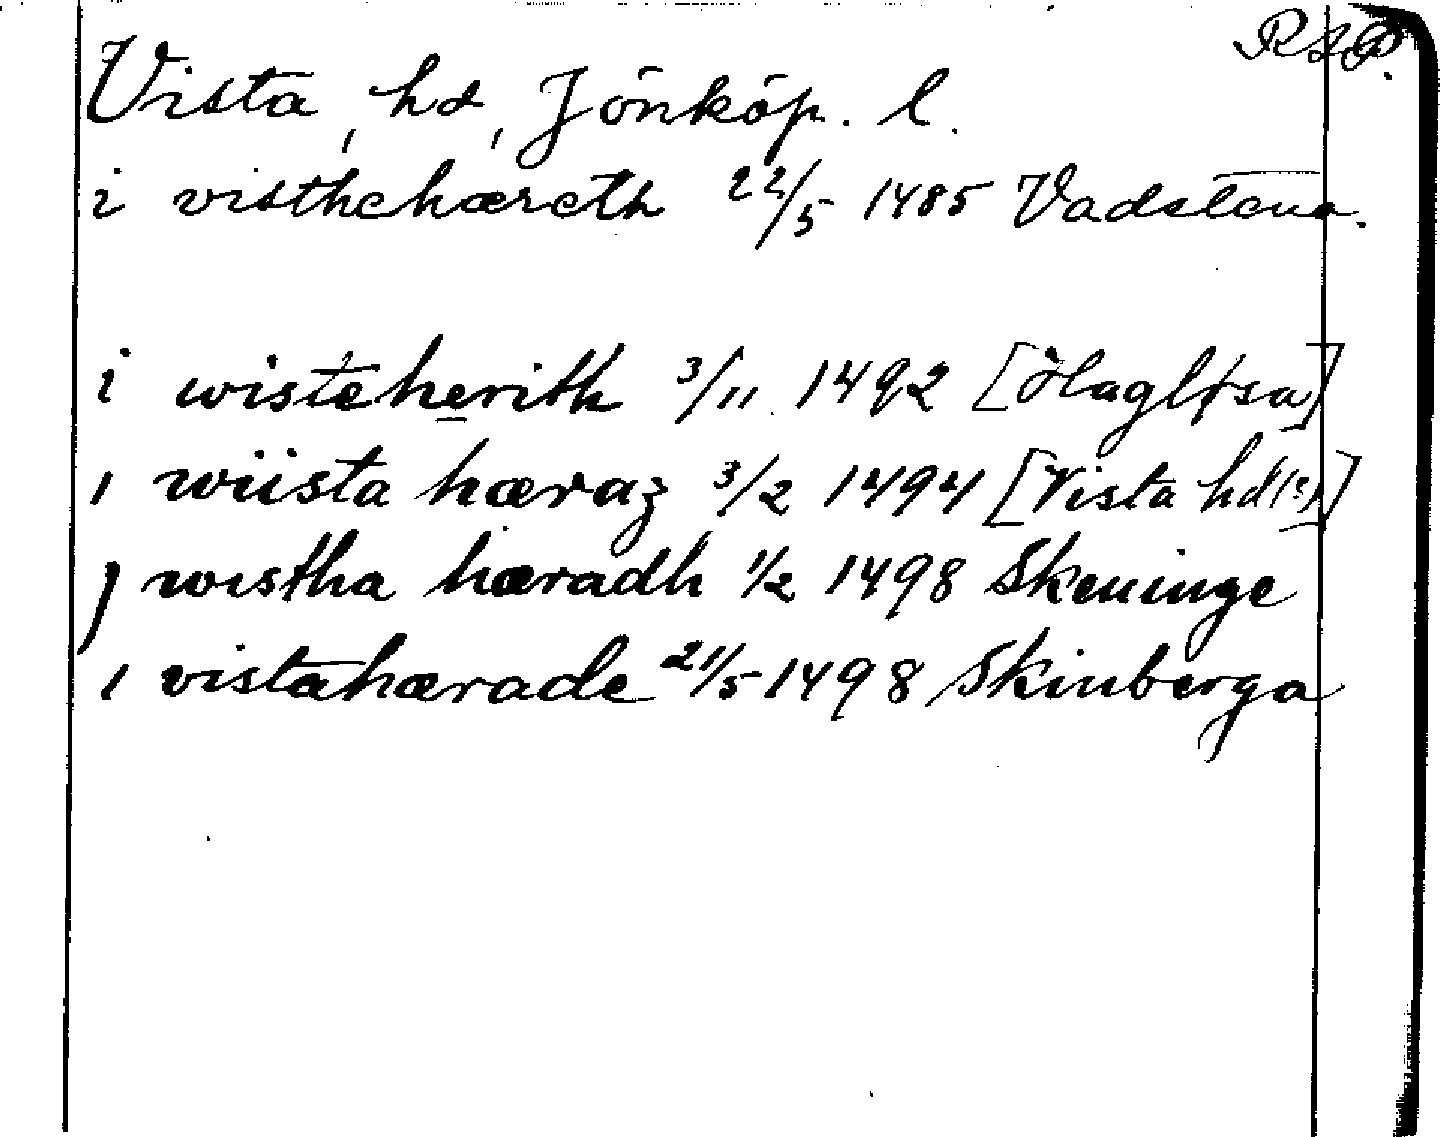 RAP.
Vista, hd, Jönköp. l.
i visthehæreth 22/5 1485 Vadstena.
i wisteherith 3/11 1492 [Ölagløsa]
i wiista hæraz 3/2 1494 [Vista hd(?)]
j wistha hæradh 1/2 1498 Skeninge
i vistahærade 21/5 1498 Skinberga